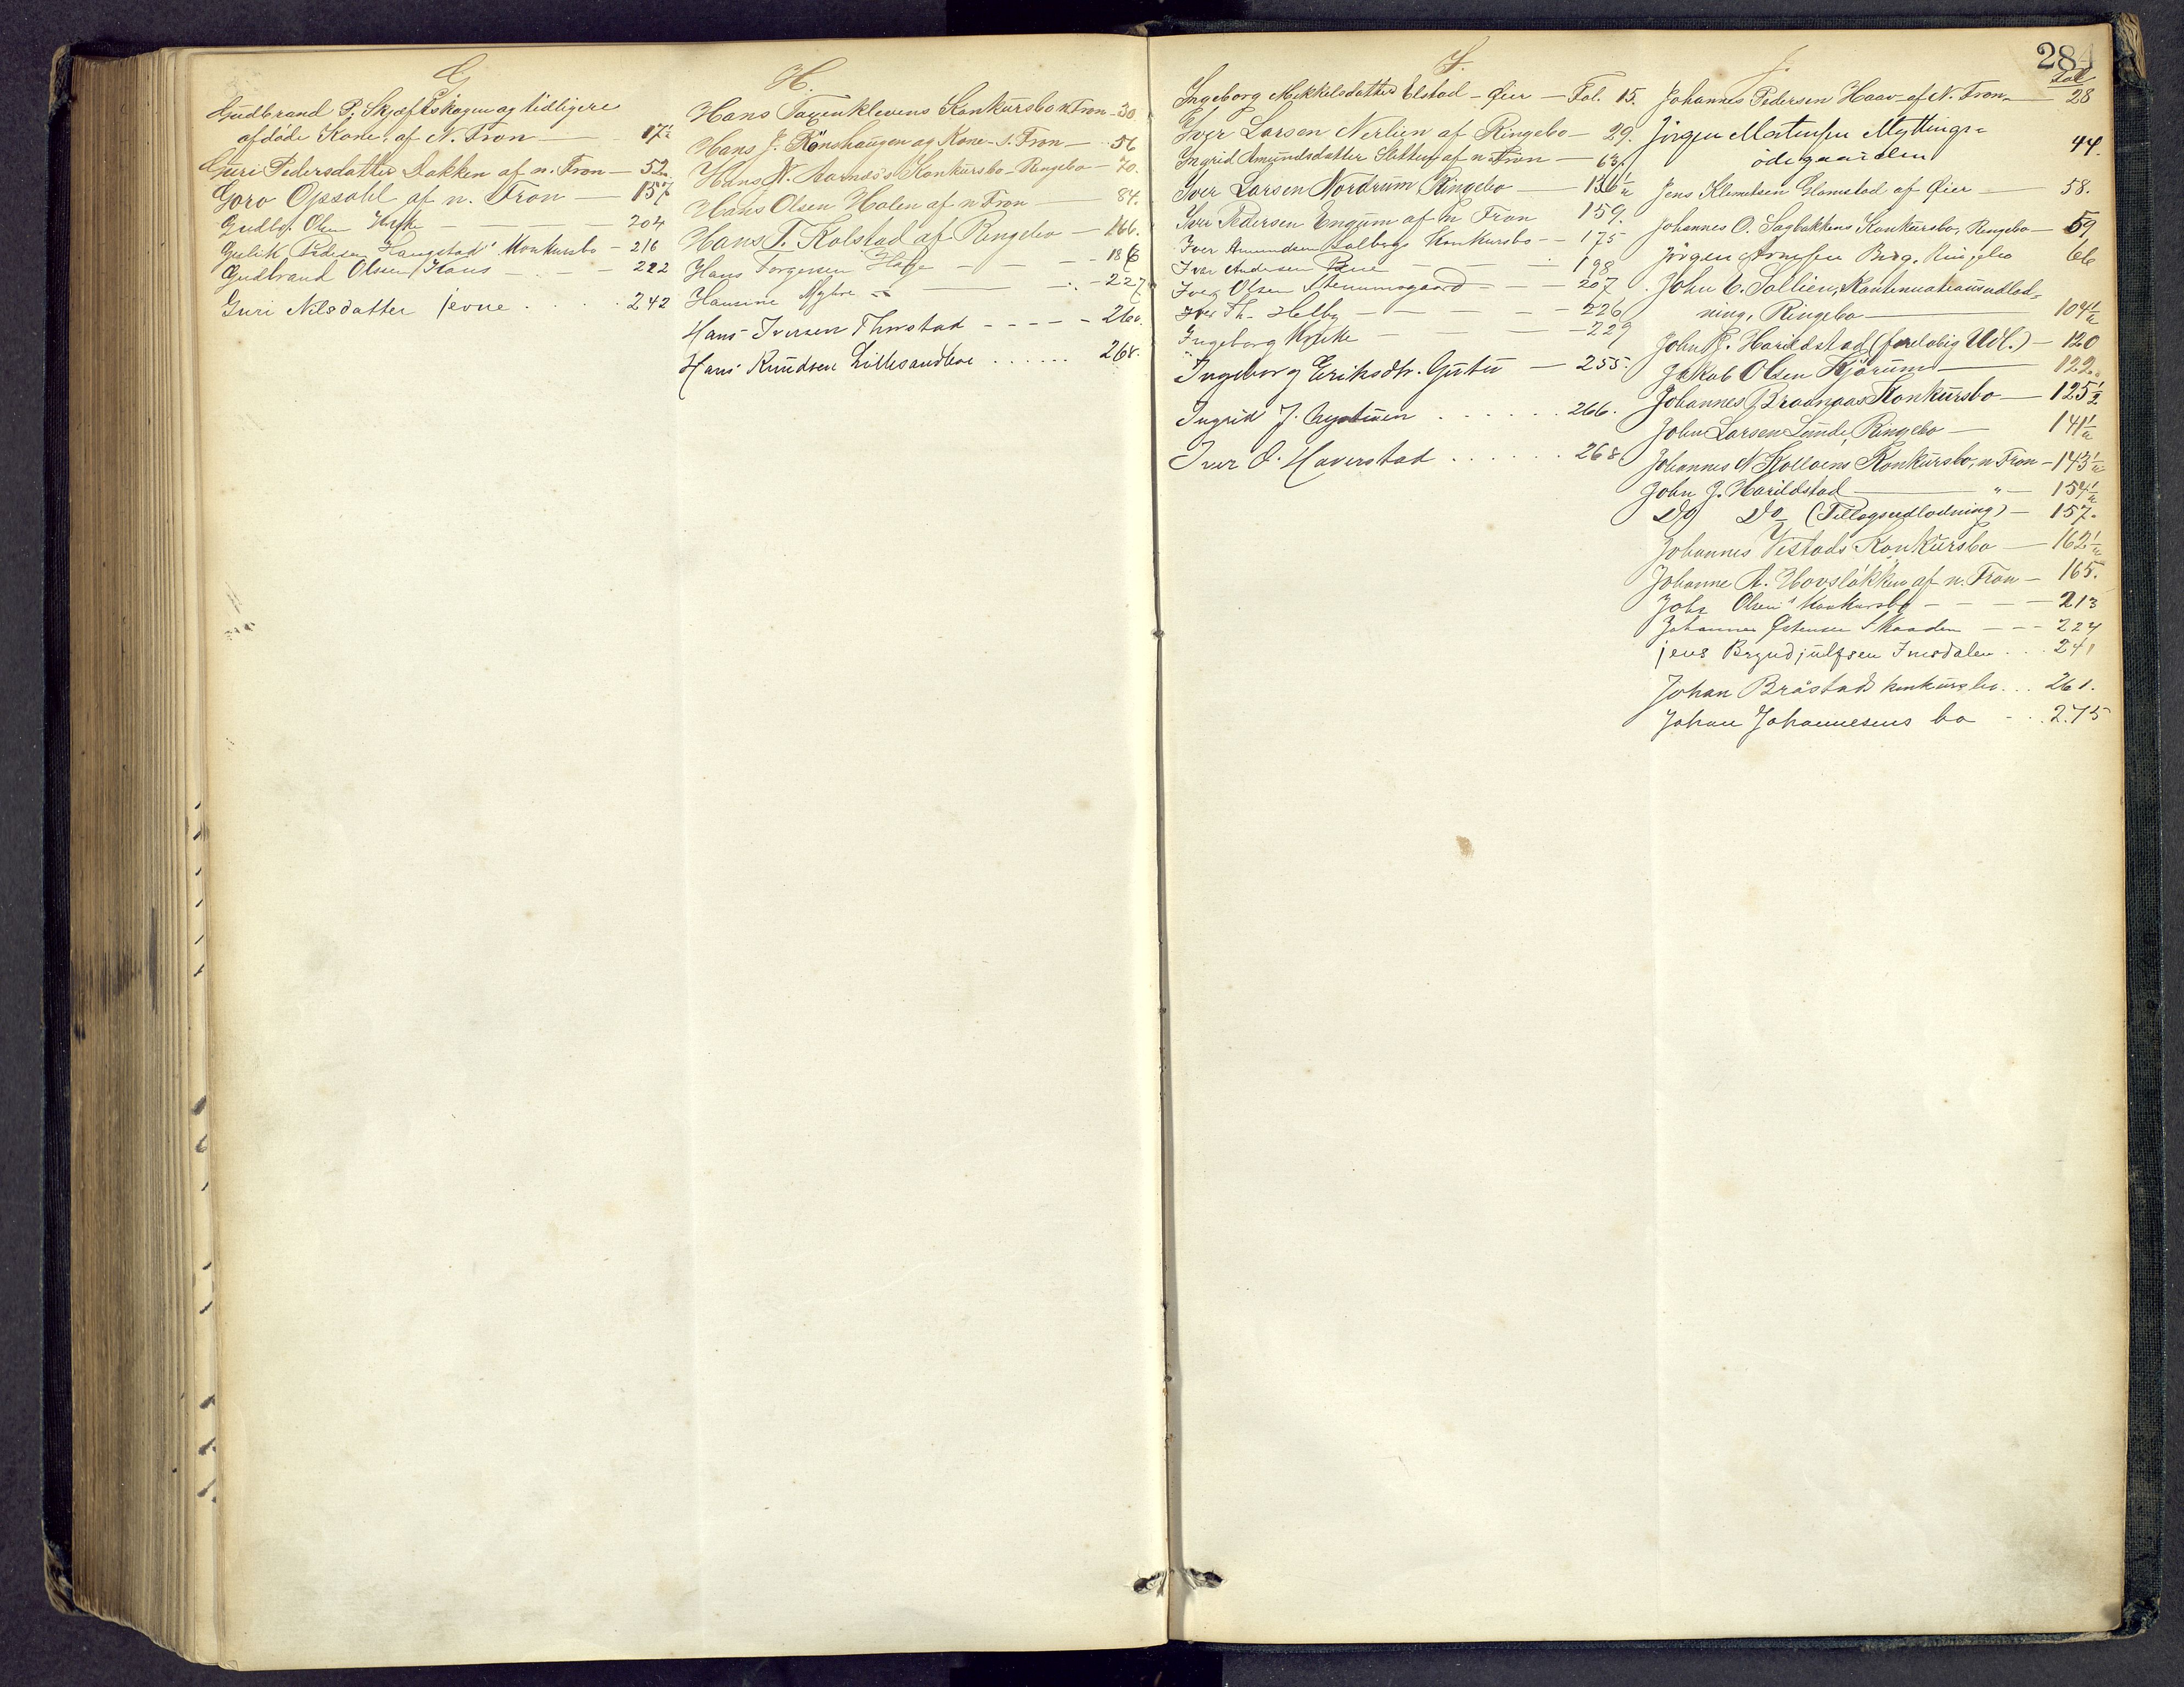 G
Gudbrand P. Skjæftskogen og tidligere
afdöde Kone, af N. Fron — 17½
Guri Pedersdatter Bakken af n. Fron — 52
Goro Opsahl af n. Fron — 157
Gudbr. Olsen — 204
Gulik Pedersen Konkursbo — 216
Gudbrand Olsen — 222
Guri Nilsdatter jevne . . . . 242
H.
Hans Konkursbo n Fron — 30
Hans J. Rönshaugen og Kone – S. Fron — 56
Hans N. Aarnæs's Konkursbo – Ringebo — 70.
Hans Olsen Holen af n Fron — 84.
Hans T. Kolstad af Ringebo — 166.
Hans Torgersen — 186
Hansine Myhre — 227
Hans Iversen Thorstad - - - - 260.
Hans Knudsen Lillesandboe . . . . . . 268.
I.
Ingeborg Mikkelsdatter Elstad – Øier — Fol. 15.
Iver Larsen Nerlien af Ringebo — 29.
Ingrid Amundsdatter Sletten af n. Fron — 63.
Iver Larsen Nordrum Ringebo — 136½
Iver Pedersen Engum af n Fron 159.
Iver Amundsen Konkursbo — 175
Iver Andersen — 198
Iver Olsen Stenumsgaard — 207
Iver Th. Helby — 226
Ingeborg — 229
Ingeborg Eriksdtr. Gutu — 255.
Ingrid J. . . . . . . 266.
Iver O. Haverstad . . . . . . 268.
J.
284
Fol
Johannes Pedersen Haav – af N. Fron — 28
Jörgen Mortensen Myttings=
ödegaarden 44.
Jens Klemetsen Glomstad af Øier — 58.
Johannes O. Sagbakkens Konkursbo, Ringebo — 59
Jörgen Ringebo 66
John E. Sollien, Kontinuationsudlod=
ning, Ringebo — 104½
John J. Harildstad (foreløbig Udl.) — 120
Jakob Olsen Kjörum — 122.
Johannes Braanaas Konkursbo — 125½
John Larsen Lunde, Ringebo — 141½
Johannes N Kolloens Konkursbo, n Fron — 143½
John J. Harildstad — " — 154½
Do Do (Tillægsudlodning) — 157.
Johannes Vistads Konkursbo — 162½
Johanne A. Hovsløkken af n. Fron — 165.
Johs Olsens Konkursbo - - - - 213
Johannes Østensen Skaaden - - - 224
jens Bryndjulfsen Imsdalen . . . 241
Johan Bråstads konkursbo . . . 261.
Johan Johannesens bo - . . 275